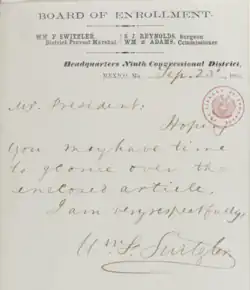 BOARD OF ENROLLMENT.
WM F SWITZLER,
District Provost Marshal.
S J REYNOLDS, Surgeon
WM S ADAMS, Commissioner
Headquarters Ninth Congressional District,
MEXICO, Mo. Sep. 23d, 186
Mr. President:
Hoping
you may have time
to glance over the
enclosed article,
I am very respectfully,
Wm. F. Switzler